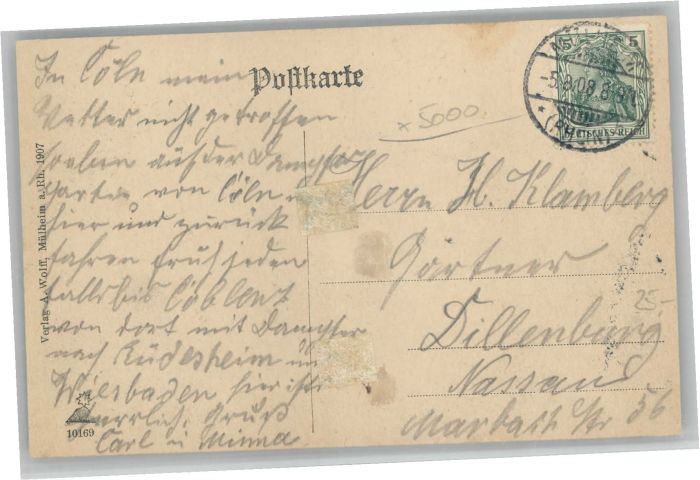 Postkarte
In Cöln mein
Vetter nicht getroffen
haben auf der Dampfer
von Cöln
hier und zurück
fahren früh jeden
falls bis Coblenz
von dort mit Dampfer
nach Rüdesheim u
Wiesbaden hier ists
herrlich. Gruß
Carl u Minna
x 5000
Herrn H. Klamberg
Gärtner
Dillenburg
Nassau
Marbach Str 56
25-
5
5
-5.8.08.8-9
(RHEIN)
DEUTSCHES REICH
Verlag A. Wolff, Mülheim a. Rh. 1907
10169